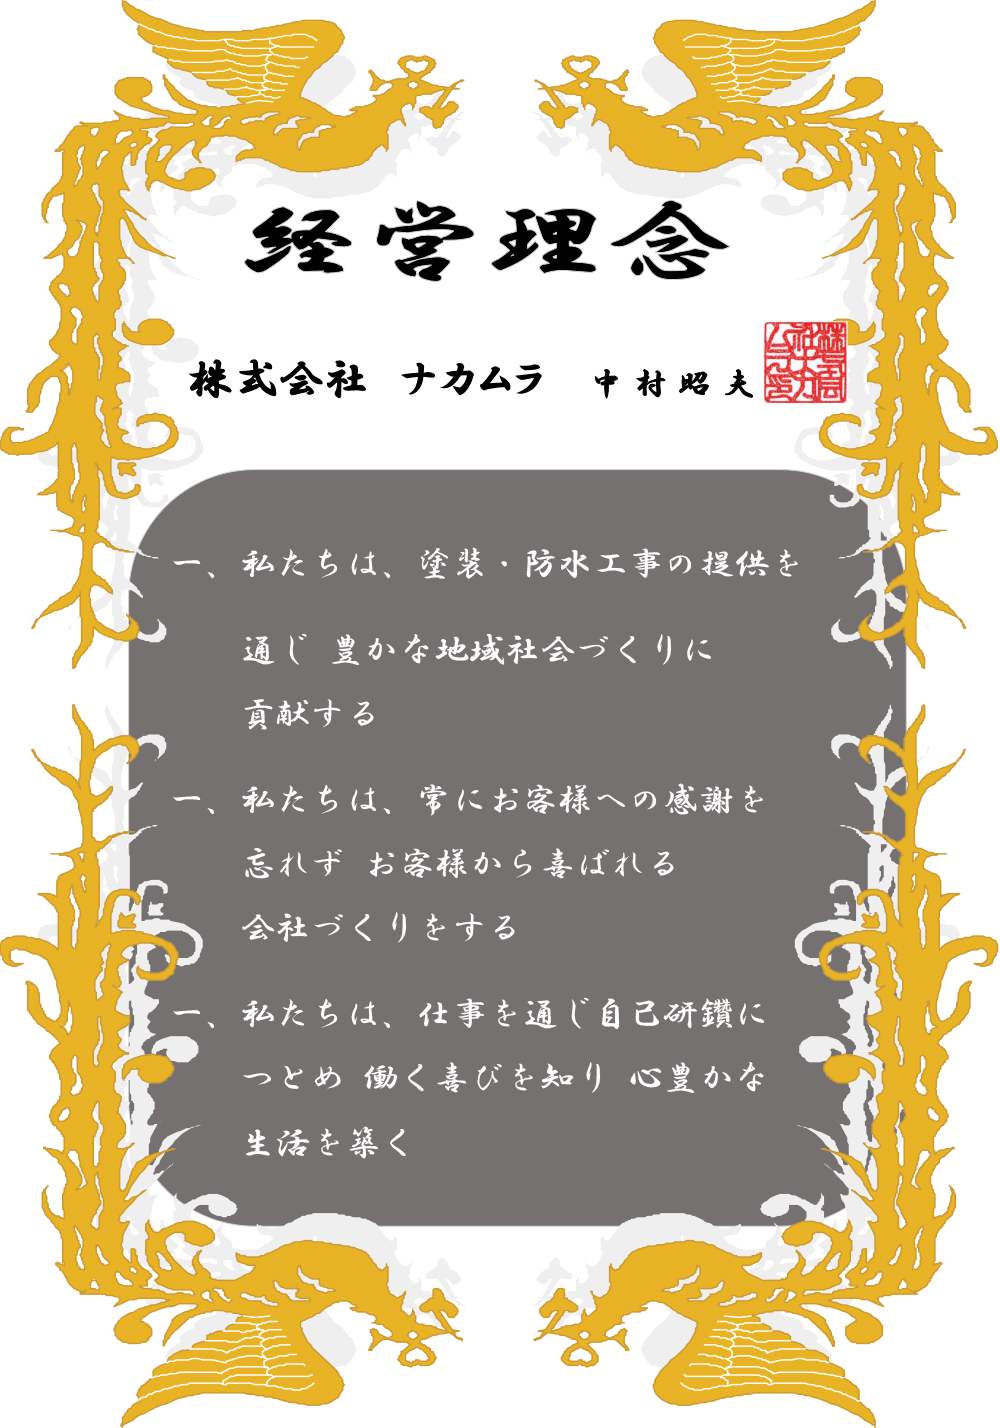 経営理念
株式会社 ナカムラ 中村昭夫
一、私たちは、塗装・防水工事の提供を
通じ 豊かな地域社会づくりに
貢献する
一、私たちは、常にお客様への感謝を
忘れず お客様から喜ばれる
会社づくりをする
一、私たちは、仕事を通じ自己研鑽に
つとめ 働く喜びを知り 心豊かな
生活を築く